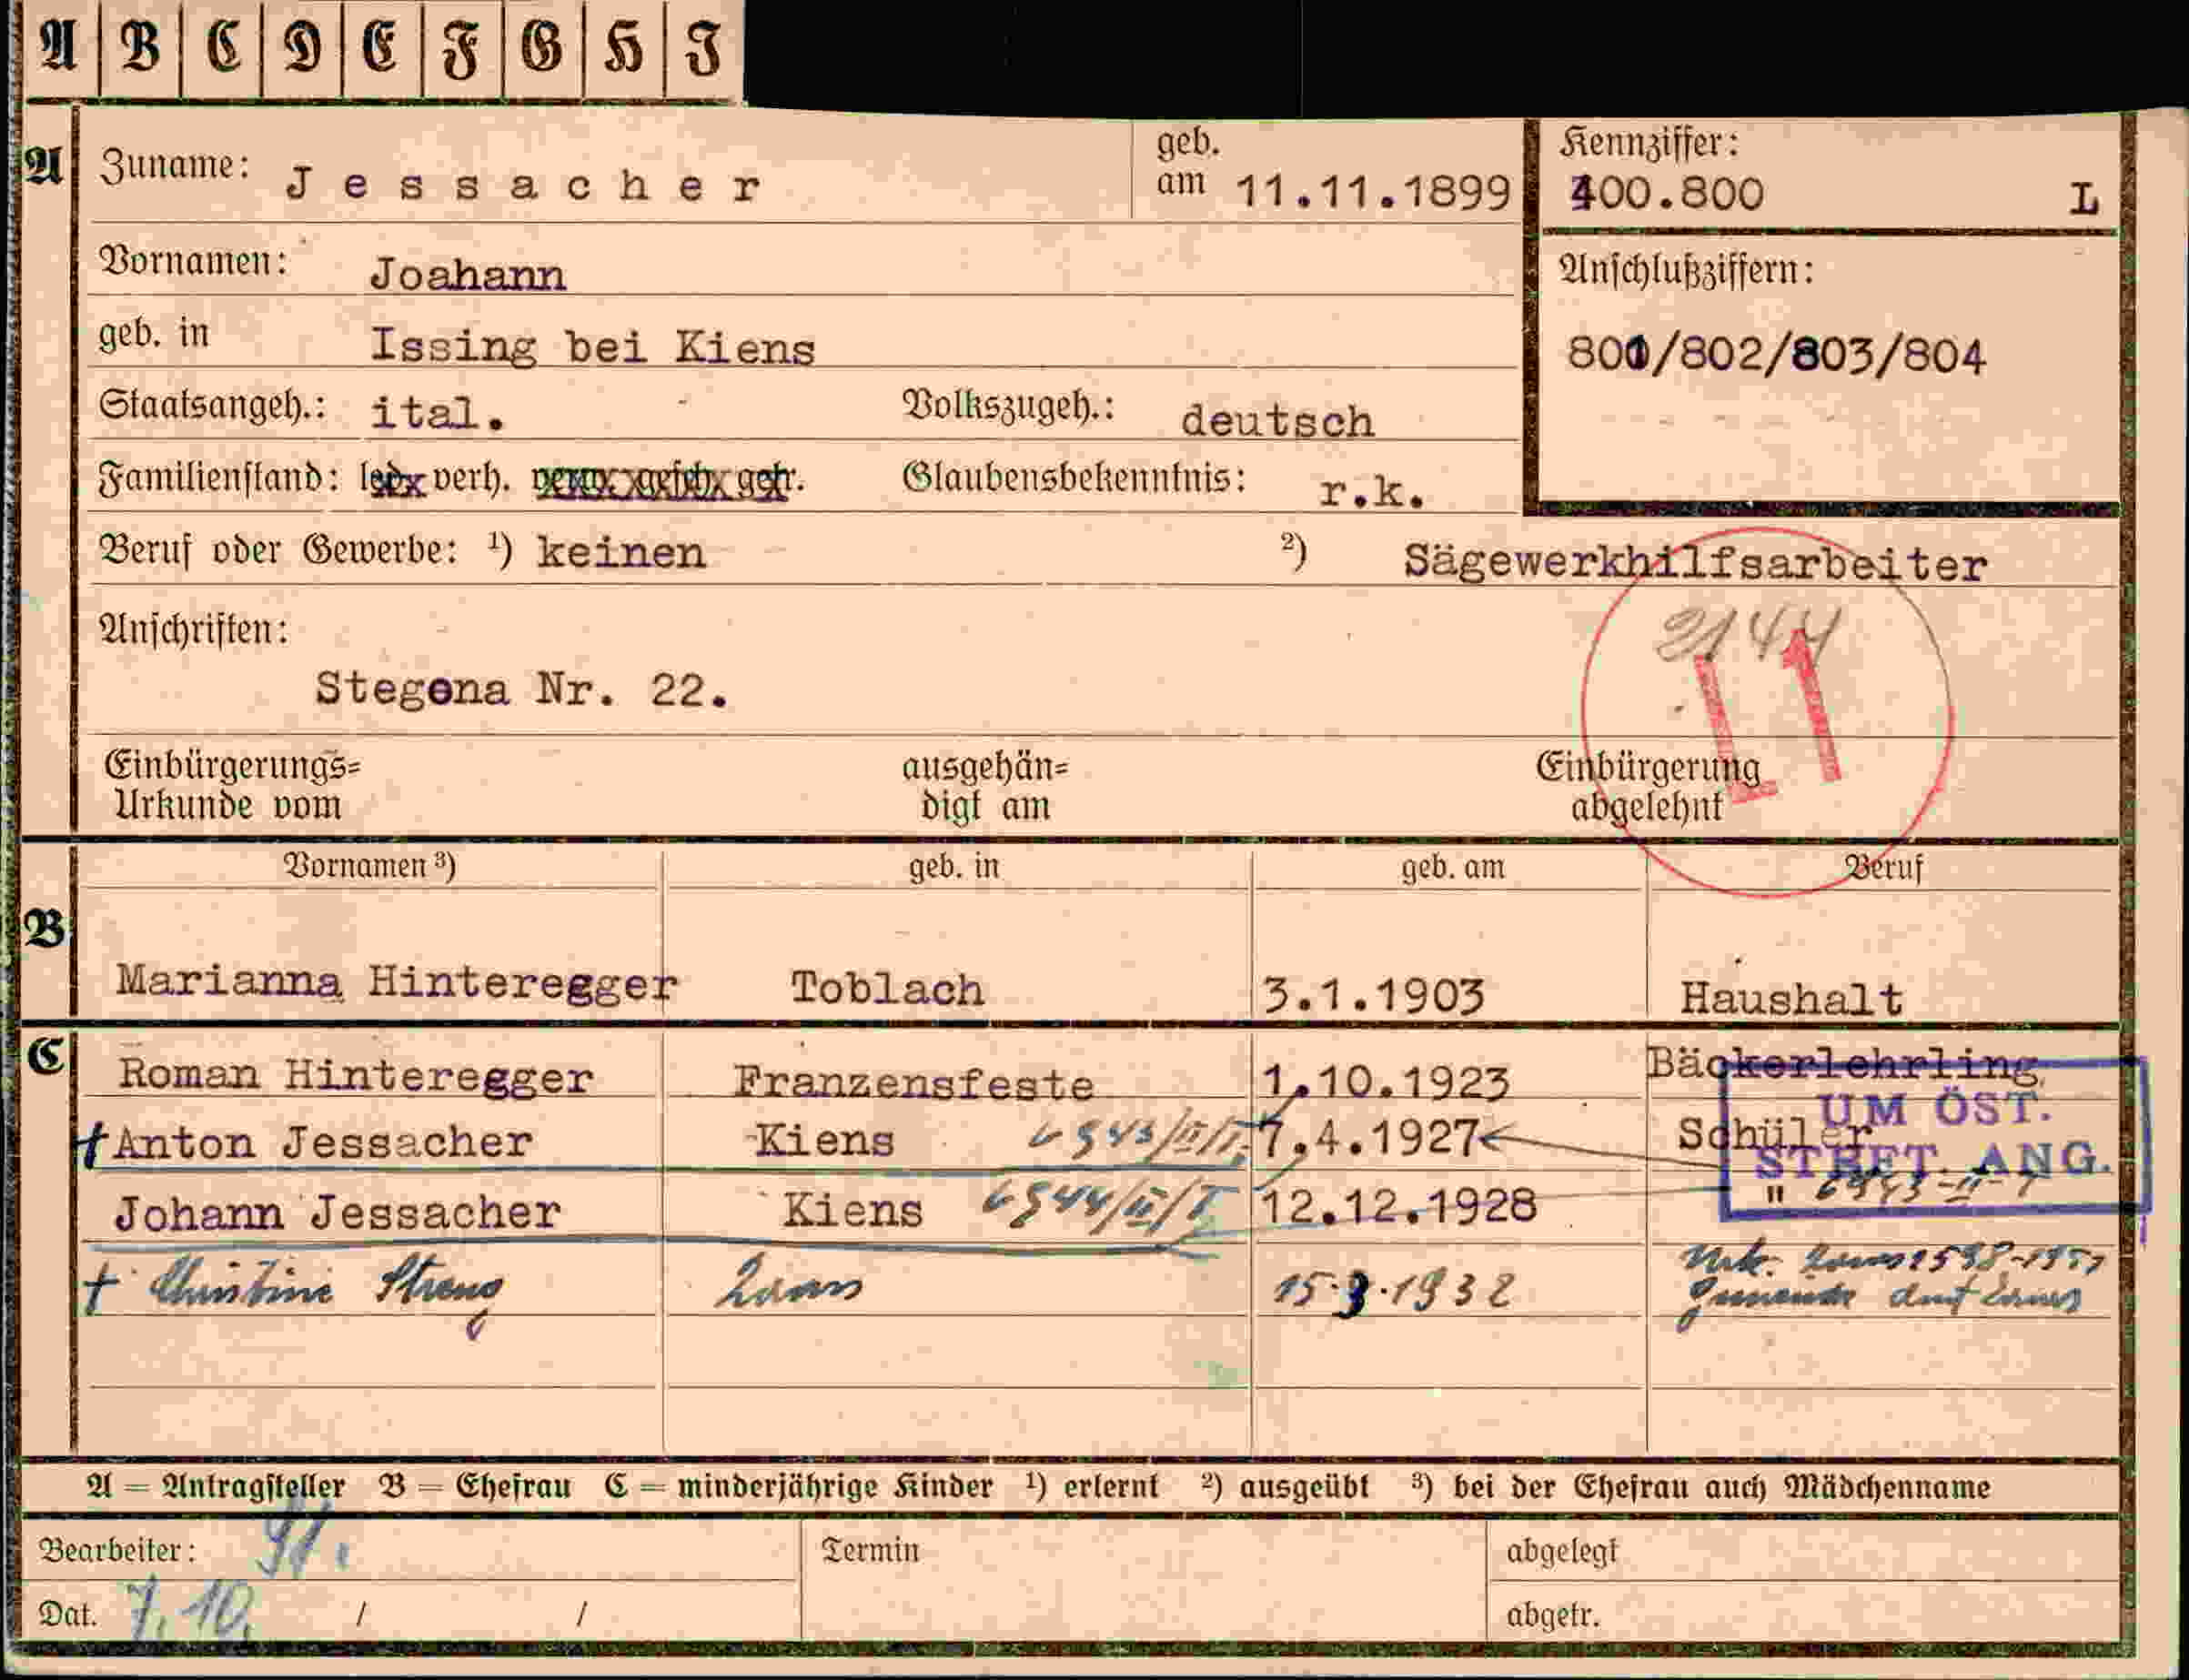 A B C D E F G H I
A Zuname: Jessacher geb. am 11.11.1899 Kennziffer: 400.800 L
Vornamen: Joahann Anschlußziffern:
geb. in Issing bei Kiens 801/802/803/804
Staatsangeh.: ital. Volkszugeh.: deutsch
Familienstand: verh. Glaubensbekenntnis: r.k.
Beruf oder Gewerbe: 1) keinen 2) Sägewerkhilfsarbeiter
Anschriften:
Stegona Nr. 22.
Einbürgerungs= ausgehän= Einbürgerung
Urkunde vom digt am abgelehnt
Vornamen 3) geb. in geb. am Beruf
B Marianna Hinteregger Toblach 3.1.1903 Haushalt
C Roman Hinteregger Franzensfeste 1.10.1923 Bäckerlehrling
UM ÖST.
† Anton Jessacher Kiens 7.4.1927 Schüler
STRFT. ANG.
Johann Jessacher Kiens 12.12.1928 "
† Christine 15.3.1932
A = Antragsteller B = Ehefrau C = minderjährige Kinder 1) erlernt 2) ausgeübt 3) bei der Ehefrau auch Mädchenname
Bearbeiter: Termin abgelegt
Dat. 7.10. / / abgetr.